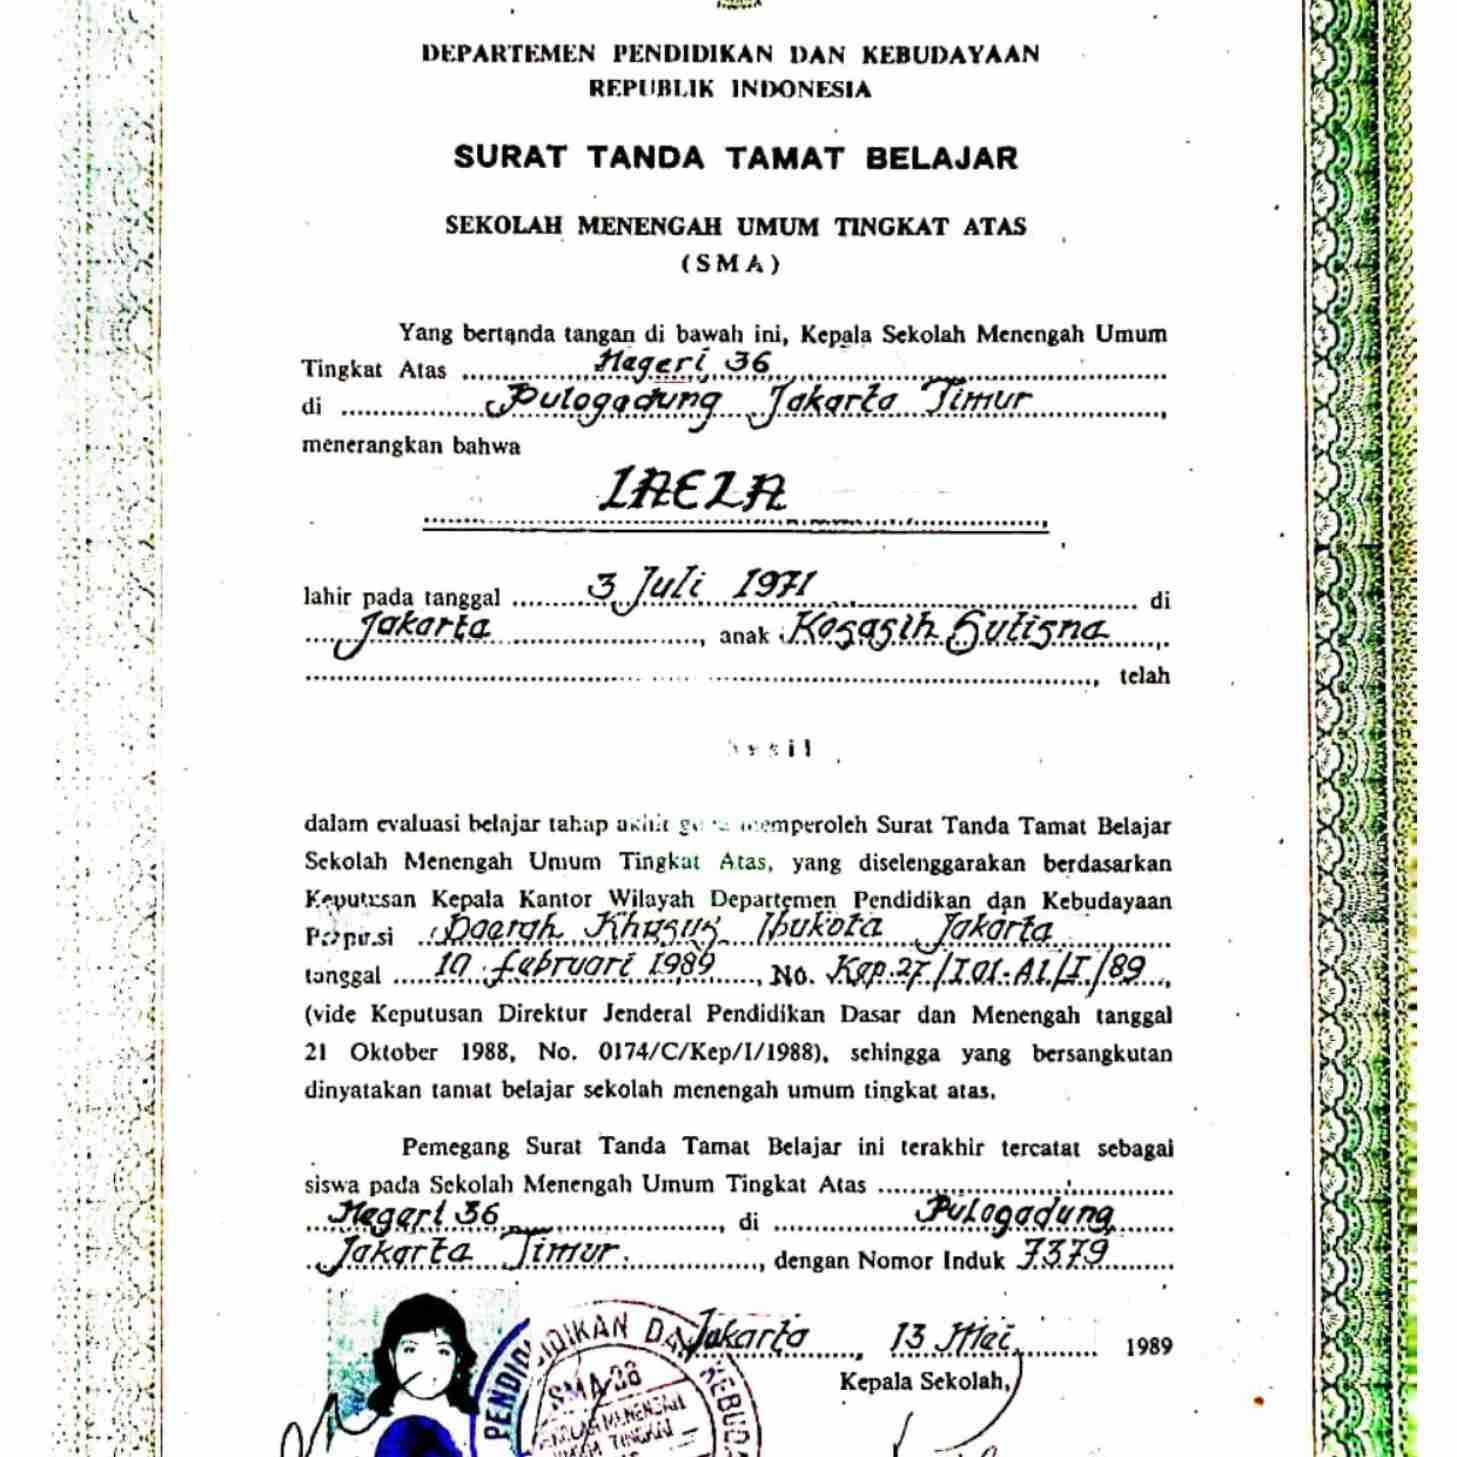 DEPARTEMEN PENDIDIKAN DAN KEBUDAYAAN
REPUBLIK INDONESIA
SURAT TANDA TAMAT BELAJAR
SEKOLAH MENENGAH UMUM TINGKAT ATAS
(SMA)
Yang bertanda tangan di bawah ini, Kepala Sekolah Menengah Umum
Tingkat Atas Negeri 36
di Pulogadung Jakarta Timur,
menerangkan bahwa
LAELA
lahir pada tanggal 3 Juli 1971 di
Jakarta, anak Kosasih Sutisna,
telah
dalam evaluasi belajar tahap akhir guna memperoleh Surat Tanda Tamat Belajar
Sekolah Menengah Umum Tingkat Atas, yang diselenggarakan berdasarkan
Keputusan Kepala Kantor Wilayah Departemen Pendidikan dan Kebudayaan
Propinsi Daerah Khusus Ibukota Jakarta
tanggal 10 Februari 1989, No. Kep.27/I.01.A1/I/89,
(vide Keputusan Direktur Jenderal Pendidikan Dasar dan Menengah tanggal
21 Oktober 1988, No. 0174/C/Kep/I/1988), sehingga yang bersangkutan
dinyatakan tamat belajar sekolah menengah umum tingkat atas.
Pemegang Surat Tanda Tamat Belajar ini terakhir tercatat sebagai
siswa pada Sekolah Menengah Umum Tingkat Atas
Negeri 36, di Pulogadung
Jakarta Timur, dengan Nomor Induk 7379
Jakarta, 13 Mei 1989
Kepala Sekolah,
PENDIDIKAN DAN KEBUD
SMA-36
SEKOLAH MENENGAH
UMUM TINGKAT